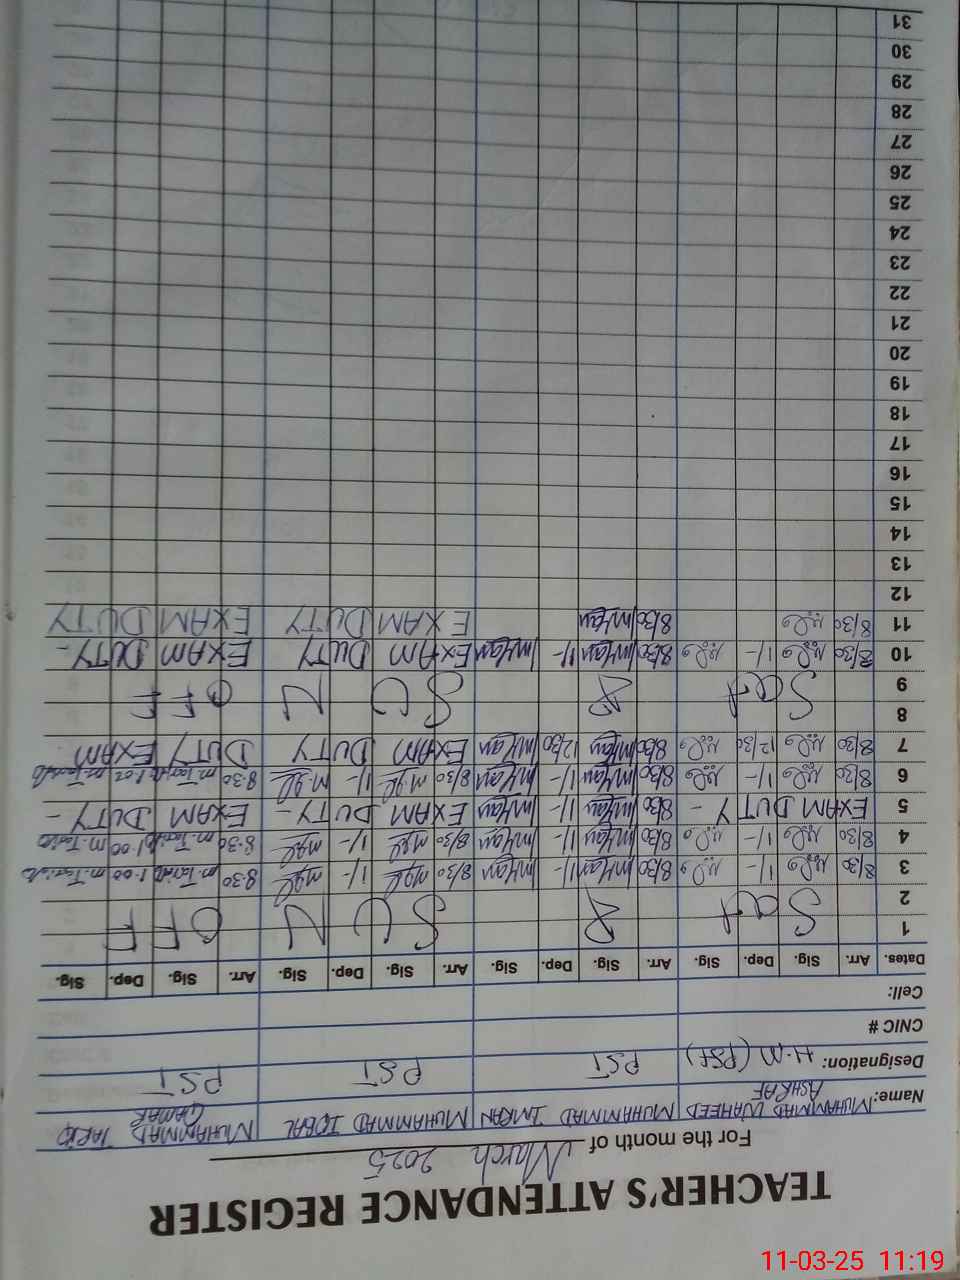 TEACHER'S ATTENDANCE REGISTER
For the month of March 2025
Name: MUHAMMAD WAHEED ASHRAF MUHAMMAD IMRAN MUHAMMAD IQBAL MUHAMMAD TARIQ QAMAR
Designation: H.M (PST) PST PST PST
CNIC #
Cell:
Dates. Arr. Sig. Dep. Sig. Arr. Sig. Dep. Sig. Arr. Sig. Dep. Sig. Arr. Sig. Dep. Sig.
1 Sat & SUN OFF
2
3 8/30 1/- 8/30 Imran 1/- Imran 8/30 1/- 8.30 M.Tariq 1.00 M.Tariq
4 8/30 1/- 8/30 Imran 1/- Imran 8/30 1/- 8.30 M.Tariq 1.00 M.Tariq
5 EXAM DUTY - 8/30 Imran 1/- Imran EXAM DUTY - EXAM DUTY -
6 8/30 1/- 8/30 Imran 1/- Imran 8/30 1/- 8.30 M.Tariq 1.00 M.Tariq
7 8/30 12/30 8/30 Imran 12/30 Imran EXAM DUTY DUTY EXAM
8 Sat & SUN OFF
9
10 8/30 1/- 8/30 Imran 1/- Imran EXAM DUTY EXAM DUTY -
11 8/30 8/30 Imran EXAM DUTY EXAM DUTY
12
13
14
15
16
17
18
19
20
21
22
23
24
25
26
27
28
29
30
31
11-03-25 11:19